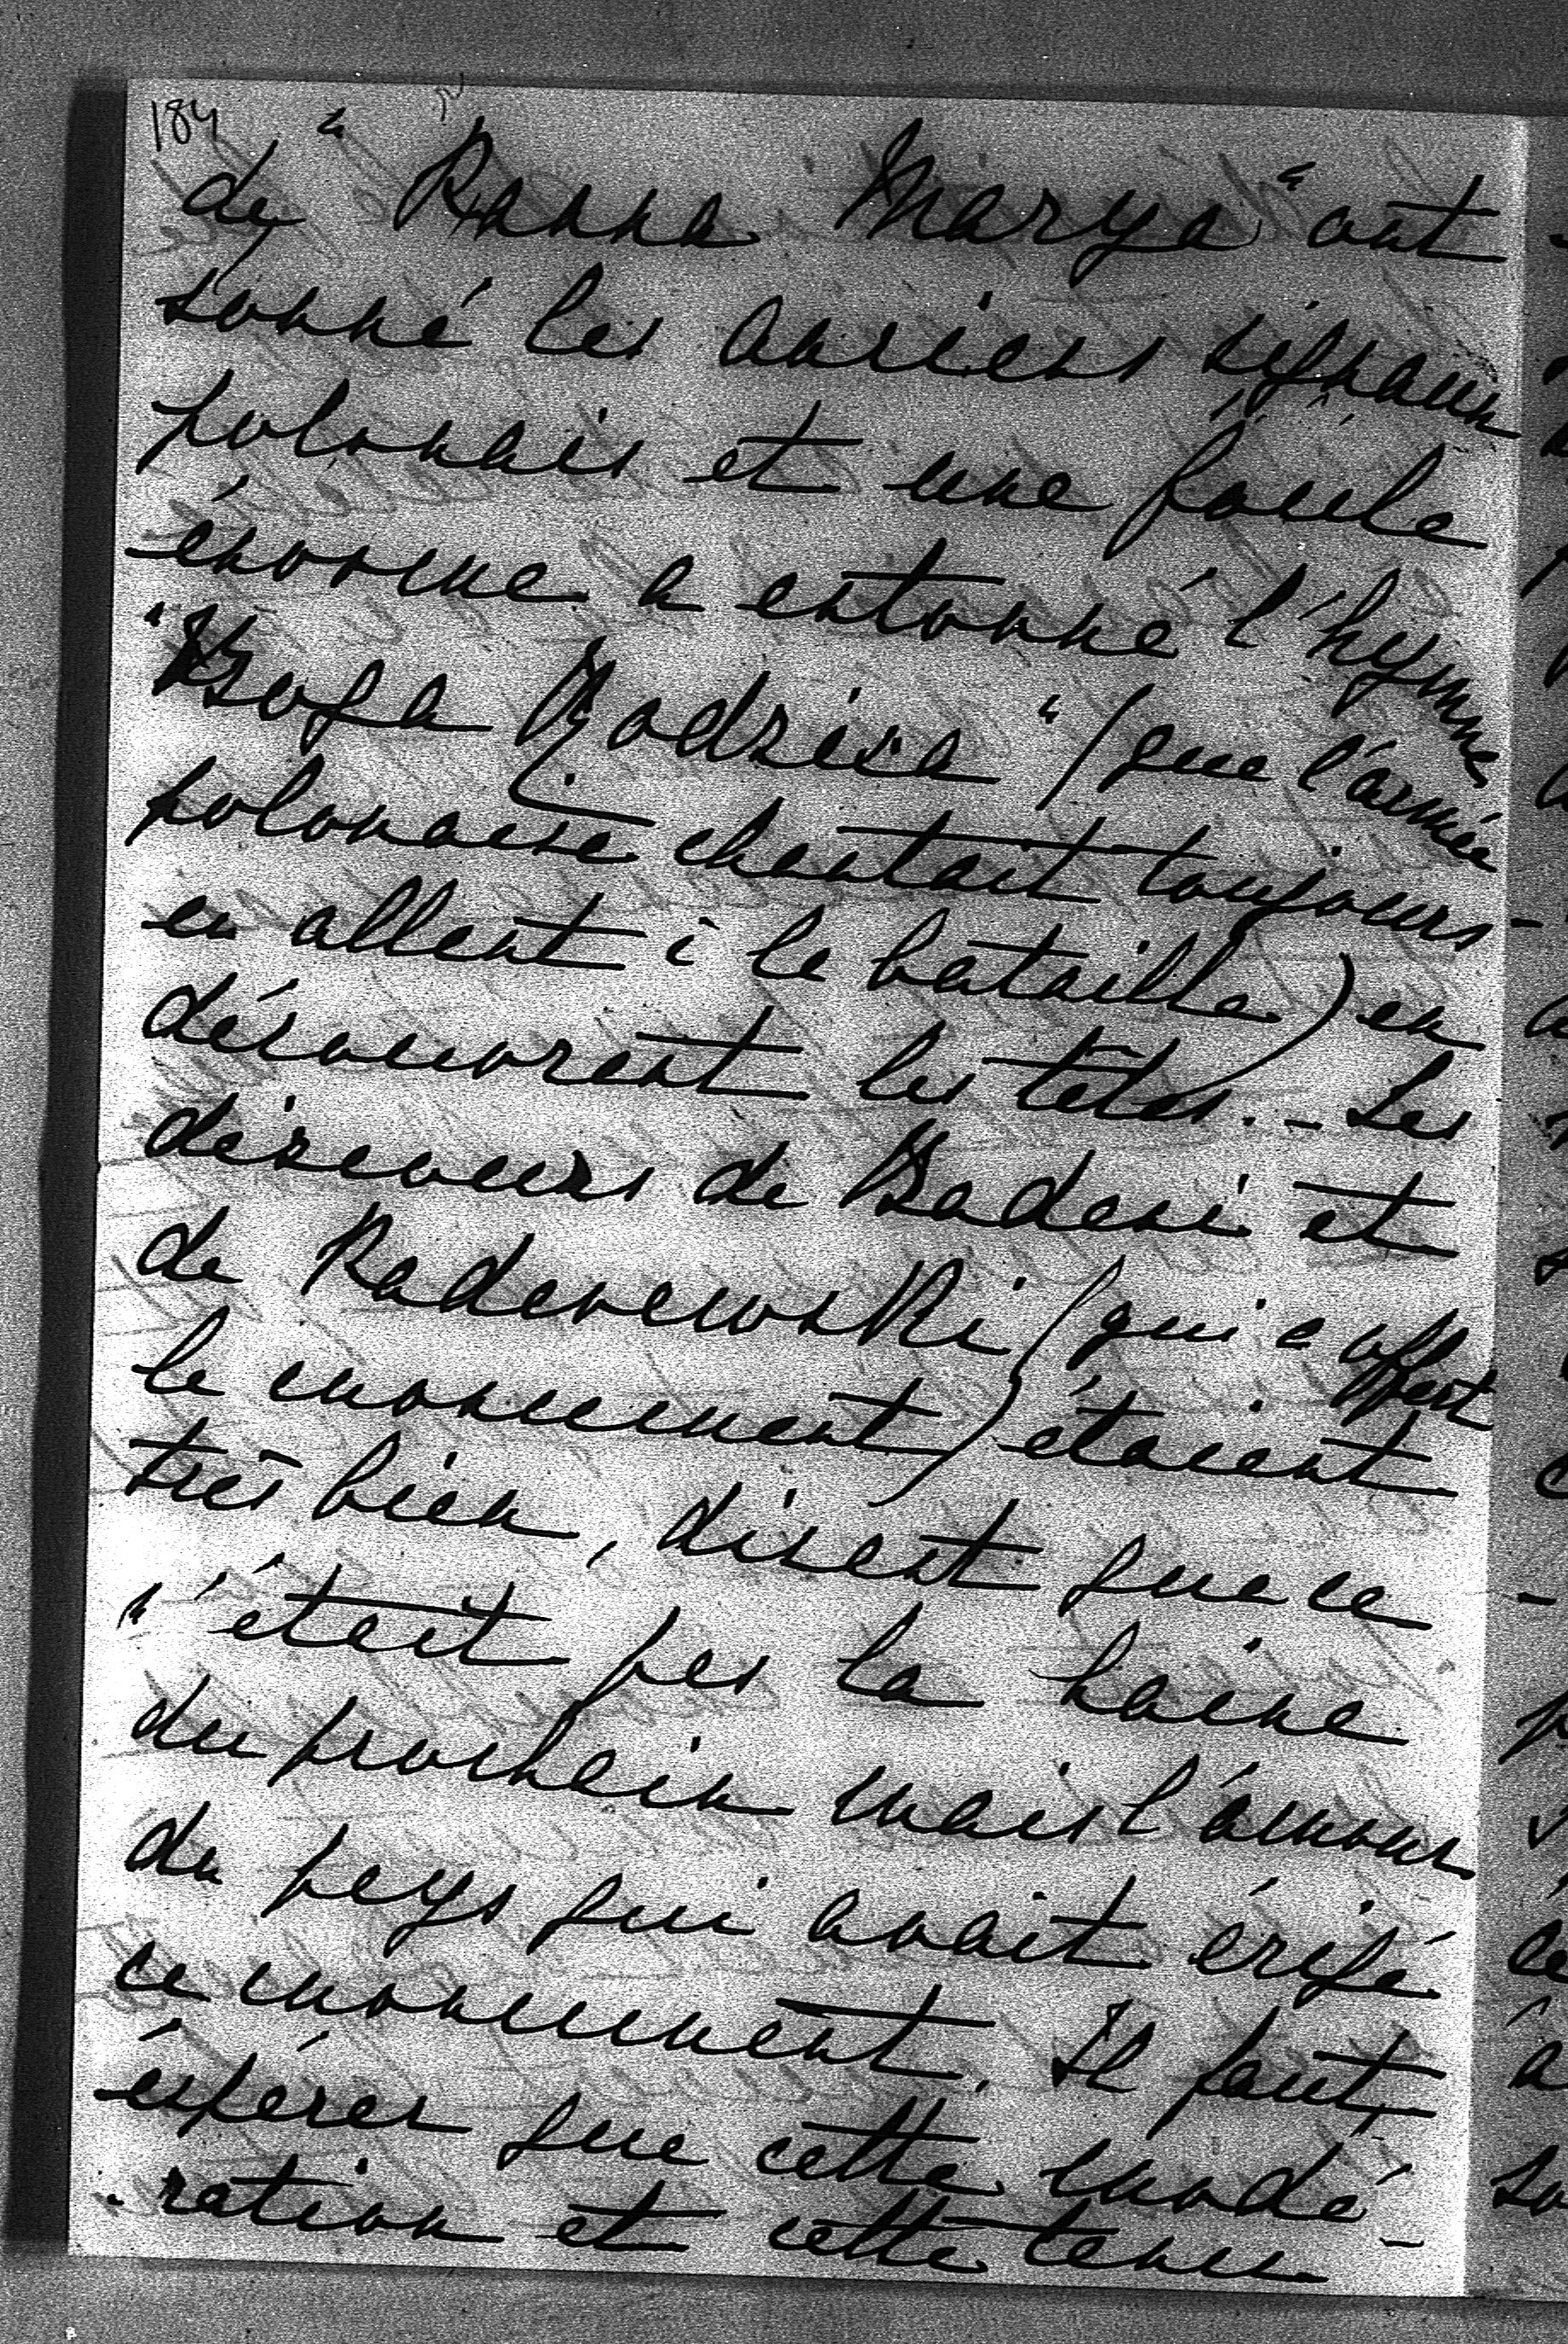 184
de "Panna Marya" ont
sonné les anciens signaux
polonais et une foule
énorme a entonné l'hymne
"Boga Rodzica" (que l'armée
polonaise chantait toujours
en allant à la bataille) en
découvrant les têtes. - Les
discours de Badeni et
de Paderewski (qui a offert
le monument) étaient
très bien, disant que ce
n'était pas la haine
du prochain mais l'amour
du pays qui avait érigé
ce monument. Il faut
espérer que cette modé-
ration et cette tenue